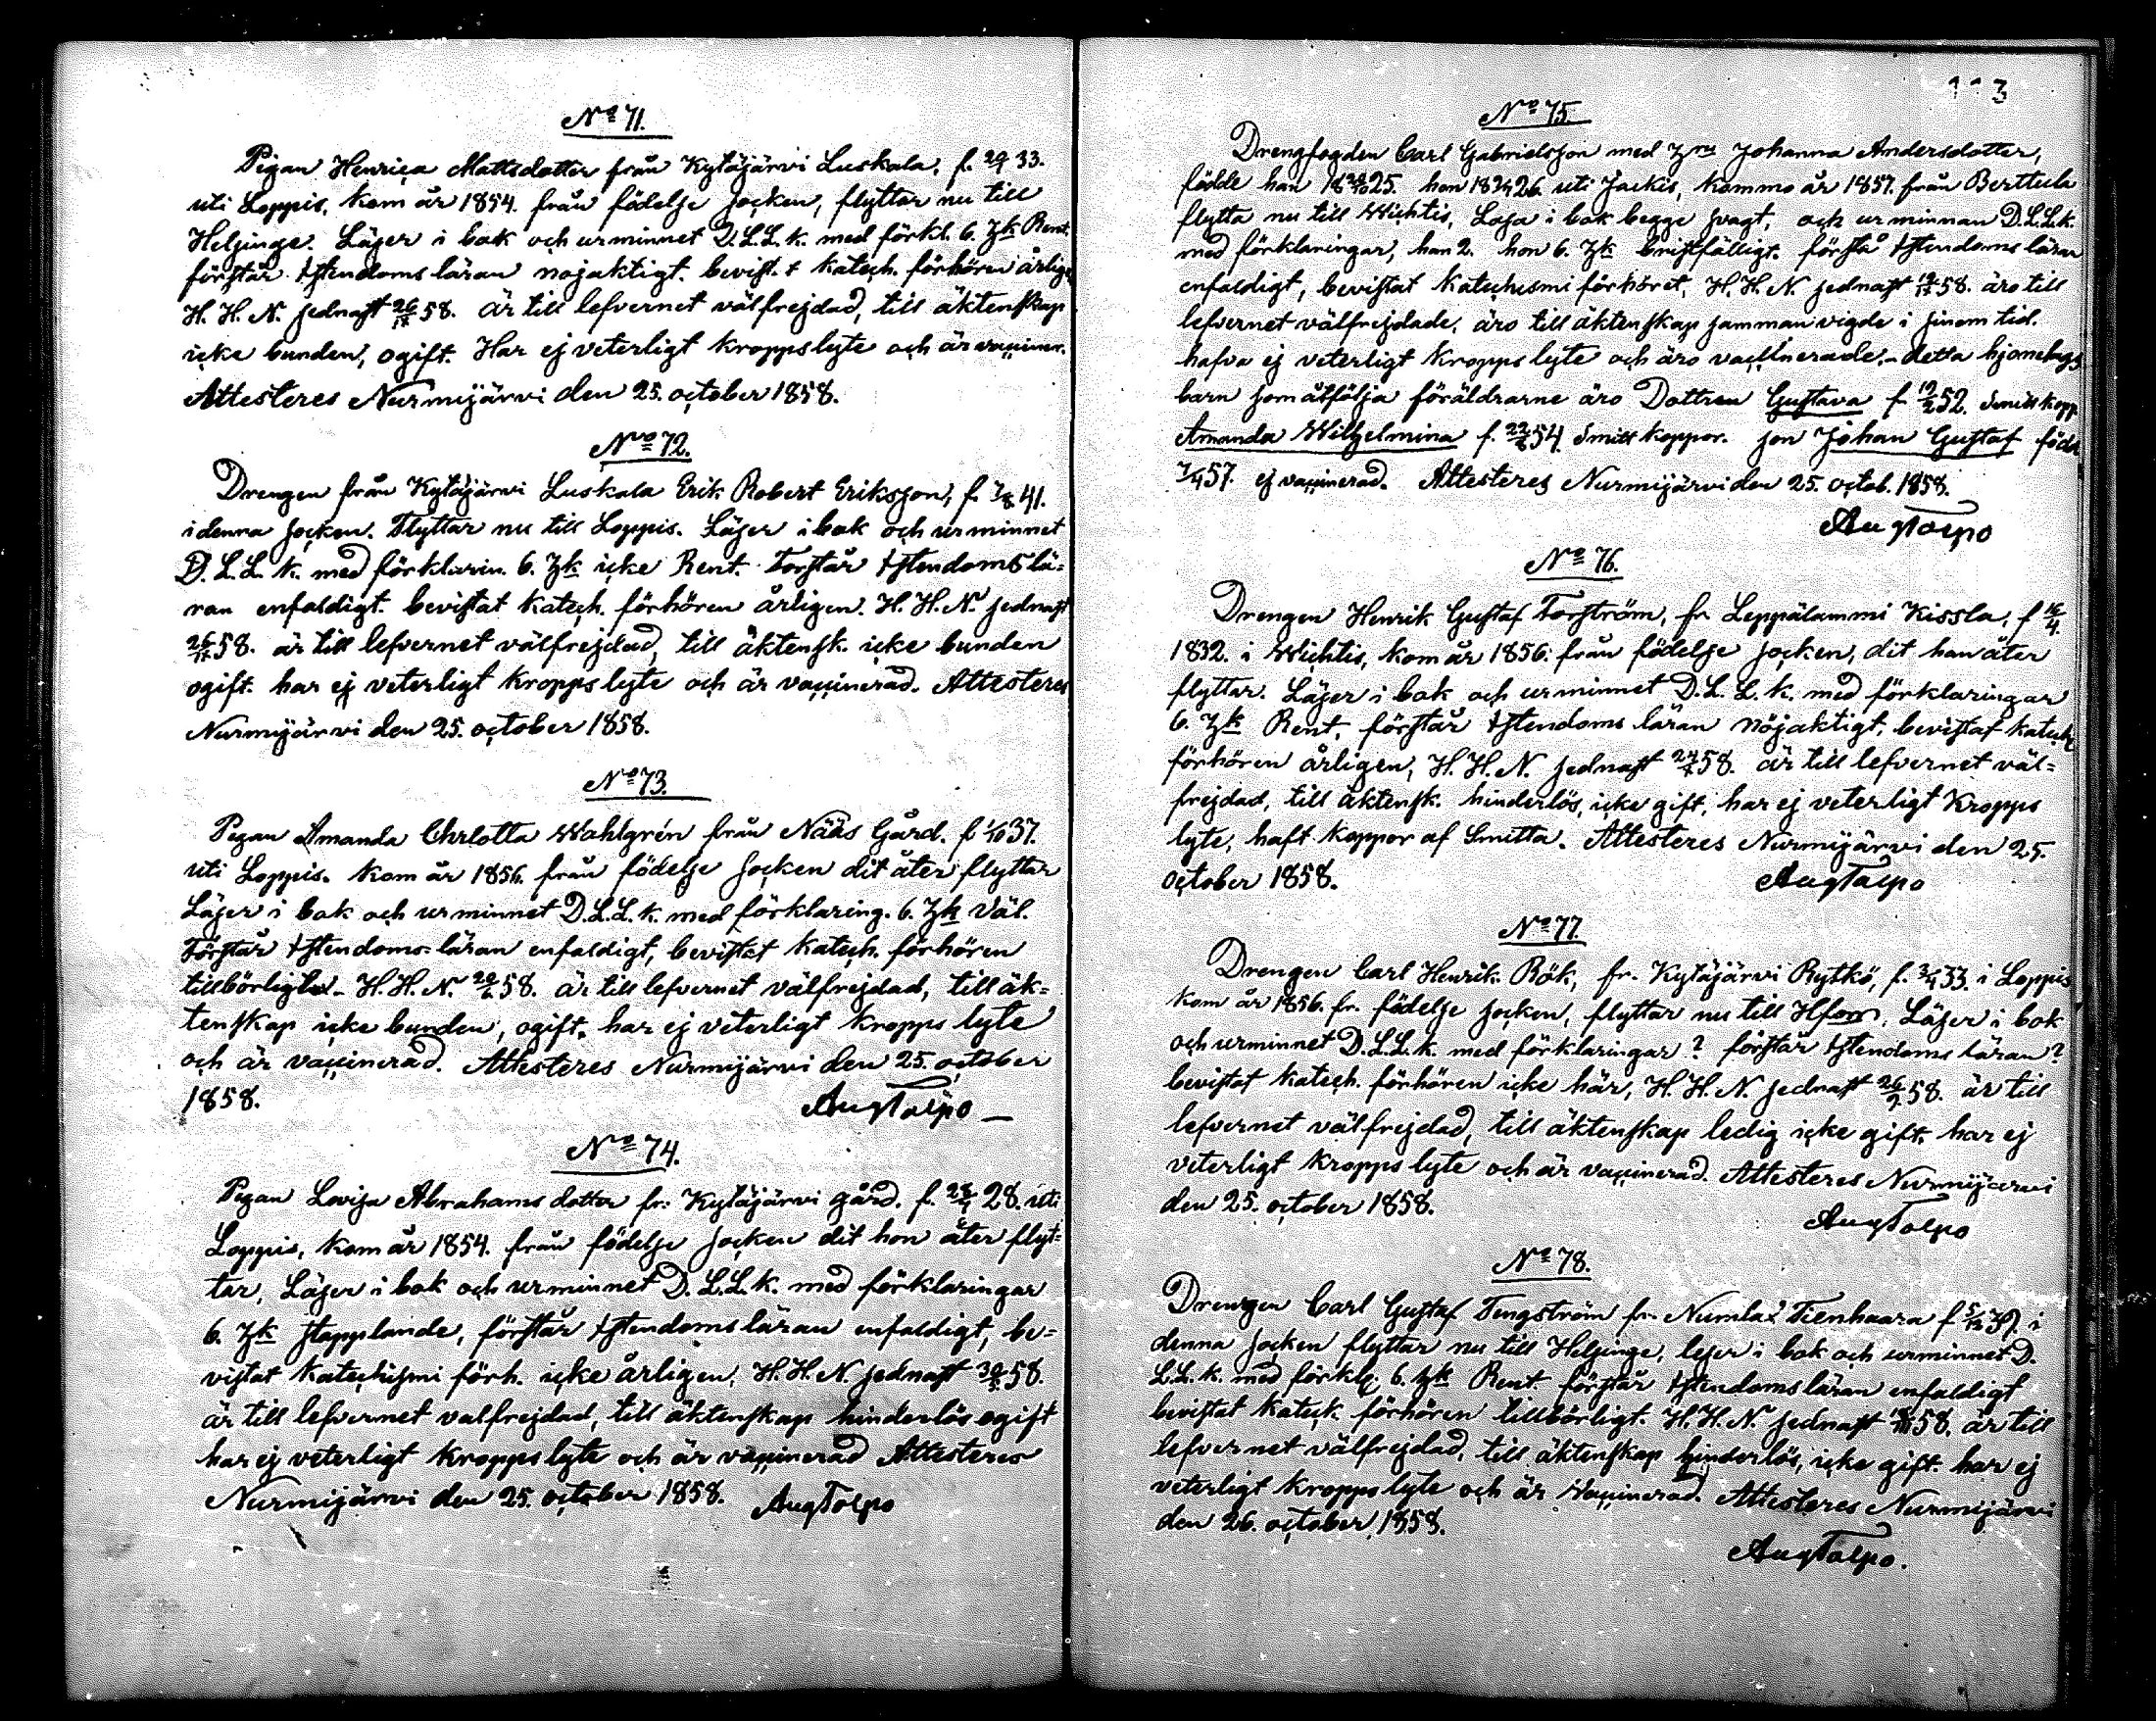 No 71.
Pigan Henrica Mattsdotter från Kytäjärvi Luskala, f. 33.
uti Loppis, kom år 1854. från födelse socken, flyttar nu till
Helsinge. Läser i bok och ur minnet D.L.L.k. med förkl. 6. Hk Rent.
förstår Xstendoms läran nojaktigt. bevist. katech. förhören årlig.
H. H. N. sednast 58. är till lefvernet välfrejdad, till äktenskap
icke bunden, ogift. Har ej veterligt kroppslyte och är vacciner.
Attesteres Nurmijärvi den 25. october 1858.
No 72.
Drengen från Kytäjärvi Luskala Erik Robert Eriksson, f. 41.
i denna socken. Flyttar nu till Loppis. Läser i bok och ur minnet
D. L. L. k. med förklarin. 6. Hk icke Rent. Forstår Xstendoms lä=
ran enfaldigt. bevistat katech. förhören årligen. H. H. N. sednast
58. är till lefvernet välfrejdad, till äktensk. icke bunden
ogift. har ej veterligt kroppslyte och är vaccinerad. Attesteres
Nurmijärvi den 25. october 1858.
No 73.
Pigan Amanda Chrlotta Wahlgrén från Nääs Gård. f. 1/10 37.
uti Loppis. kom år 1856. från födelse socken dit åter flyttar
Läser i bok och ur minnet D.L.L.k. med förklaring. 6. Hk Väl.
Förstår Xstendoms-läran enfaldigt, bevistat katech. förhören
tillbörligt. H. H. N. 58. är till lefvernet välfrejdad, till äk=
tenskap icke bunden, ogift. har ej veterligt kropps lyte
och är vaccinerad. Attesteres Nurmijärvi den 25. october
1858. Aug Talpo
No 74.
Pigan Lovisa Abrahams dotter fr. Kytäjärvi gård. f. 28. uti
Loppis, kom år 1854. från födelse socken dit hon åter flyt=
tar, Läser i bok och ur minnet D. L.L. k. med förklaringar
6. Hk stapplande, förstår Xstendoms läran enfaldigt, be=
vistat katechismi förh. icke årligen, H.H.N. sednast 58.
är till lefvernet valfrejdad, till äktenskap hinderlös ogift
har ej veterligt kroppslyte och är vaccinerad Attesteres
Nurmijärvi den 25. october 1858. Aug Talpo
113
No 75.
Drengfogden Carl Gabrielsson med Hru Johanna Andersdotter,
födde han 25. hon 26. uti Jockis, kommo år 1857. från Berttula
flytta nu till Wichtis, Läsa i bok begge svagt, och ur minnan D.L.L.k.
med förklaringar, han 2. hon 6. Hk bristfälligt. förstå Xstendoms läran
enfaldigt, bevistat katechismi förhöret, H. H. N. sednast 58. äro till
lefvernet välfrejdade, äro till äktenskap samman vigde i sinom tid.
hafva ej veterligt kropps lyte och äro vaccinerade. - detta hjonelags
barn som åtfölja föräldrarne äro Dottren Gustava f. 52. smitt kopp.
Amanda Wilhelmina f. 54. smitt koppor. son Johan Gustaf född
57. ej vaccinerad. Attesteres Nurmijärvi den 25. octob. 1858.
Aug Talpo
No 76.
Drengen Henrik Gustaf Forström, fr. Leppälammi Kissla, f.
1832. i Wichtis, kom år 1856. från födelse socken, dit han åter
flyttar. Läser i bok och ur minnet D. L. L. k. med förklaringar
6. Hk Rent, förstår Xstendoms läran nöjaktigt, bevistat katech
förhören årligen, H. H. N. sednast 58. är till lefvernet väl=
frejdad, till äktensk. hinderlös, icke gift, har ej veterligt kropps
lyte, haft koppor af Smitta. Attesteres Nurmijärvi den 25.
october 1858. Aug Talpo
No 77.
Drengen Carl Henrik Rök, fr. Kytäjärvi Rytkö, f. 33. i Loppis
kom år 1856. fr. födelse socken, flyttar nu till Hfors, Läser i bok
och ur minnet D.L.L.k. med förklaringar? förstår Xstendoms läran?
bevistat katech. förhören icke här, H. H. N. sednast 58. är till
lefvernet välfrejdad, till äktenskap ledig icke gift. har ej
veterligt kropps lyte och är vaccinerad. Attesteres Nurmijärvi
den 25. october 1858.
Aug Talpo
No 78.
Drengen Carl Gustaf Tengström fr. Numlax Tienhaara f. 5/12 39. i
denna socken flyttar nu till Helsinge, leser i bok och ur minnet D.
L.L. k. med förklg. 6. Hk Rent. förstår Xstendoms läran enfaldigt
bevistat katech. förhören tillbörligt. H. H. N. sednast 58. är till
lefvernet välfrejdad, till äktenskap hinderlös, icke gift. har ej
veterligt kropps lyte och är vaccinerad. Attesteres Nurmijärvi
den 26. october 1858.
Aug Talpo.